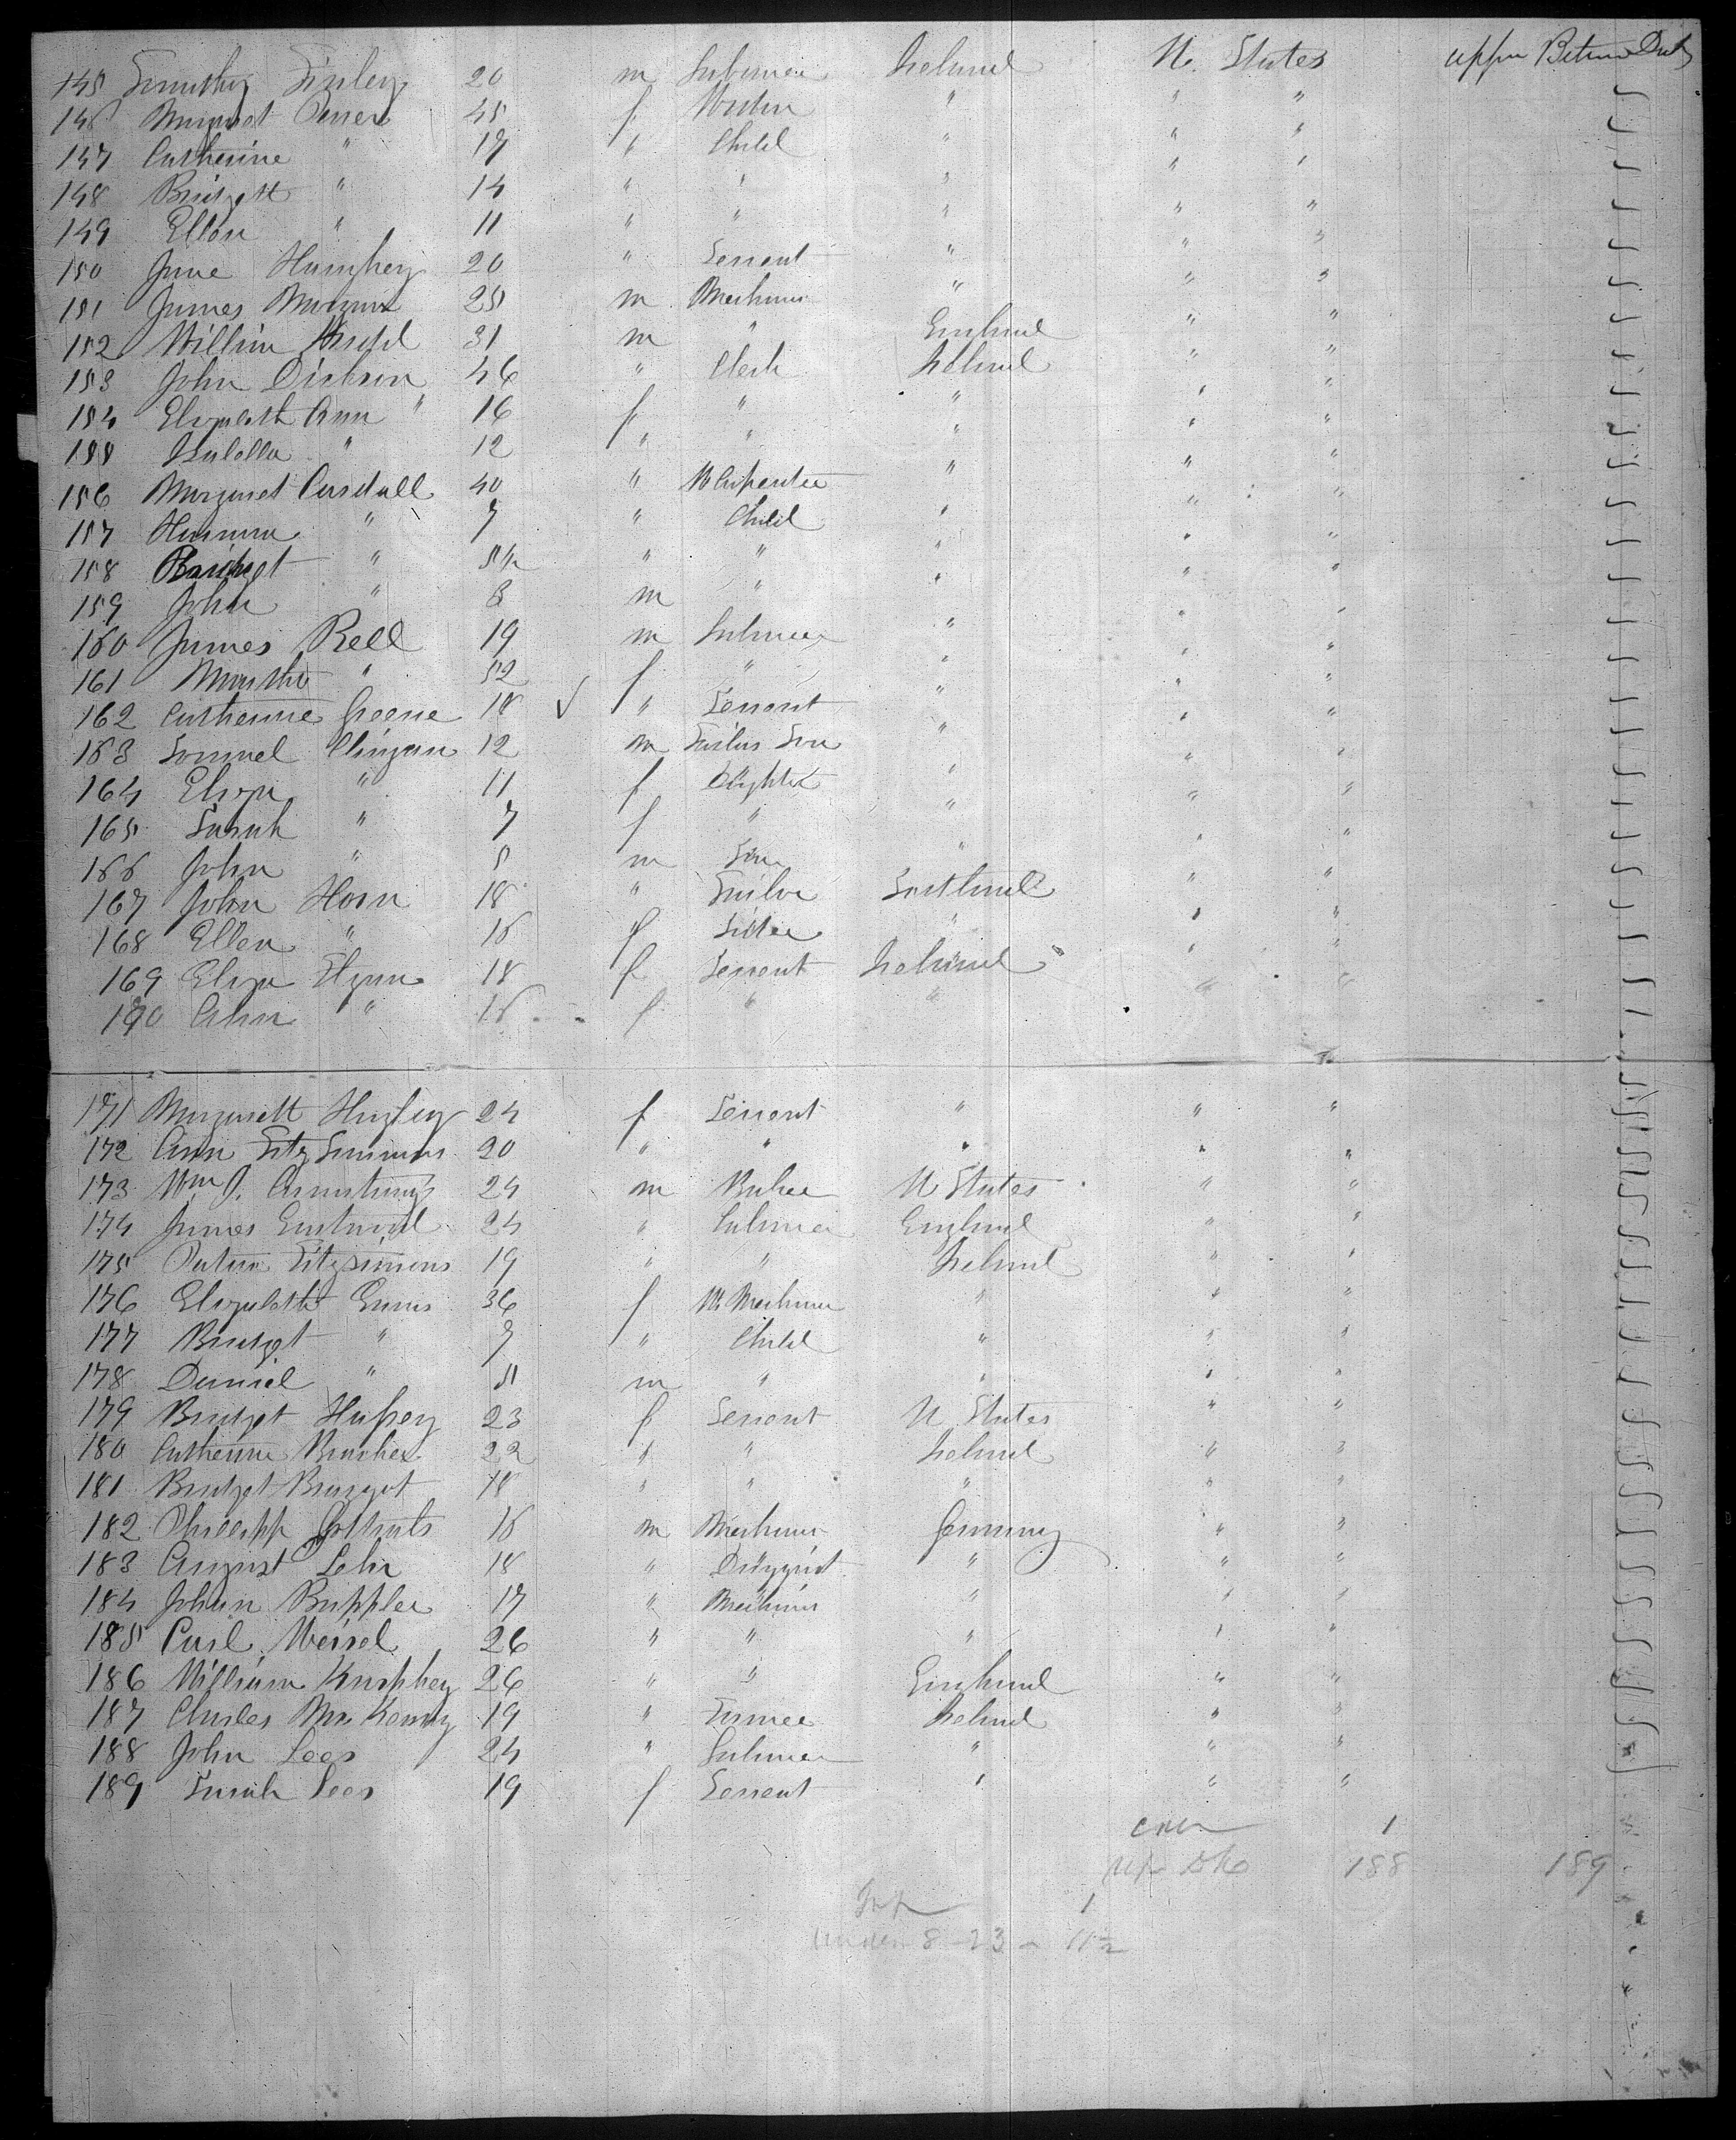 145 Timothy Finley 20 m Labourer Ireland U. States upper Between Deck
146 Margaret 45 f " " "
147 Catherine " 17 " Child " " "
148 Bridgett " 14 " " " " "
149 Ellen " 11 " " " " "
150 Jane Humphrey 20 " Servant " " "
151 James Morgan 25 m Mechanic " " "
152 William 31 m " England " "
153 John Dickson 46 " Clerk Ireland " "
154 Elizabeth Ann " 16 f " " " "
155 Isabella " 12 " " " " "
156 Margaret Cardall 40 " W Carpenter " " "
157 Hanna " 7 " Child " " "
158 Bridget " " " " " "
159 John " 3 m " " " "
160 James Bell 19 m Labourer " " "
161 Martha " 52 f " " " "
162 Catherine Greene 18 √ " Servant " " "
163 Samuel Clingan 12 m Tailors Son " " "
164 Eliza " 11 f Daughter " " "
165 Sarah " 7 f " " " "
166 John " 5 m Son " " "
167 John Horn 18 " Tailor Scotland " "
168 Ellen " 16 f Sister " " "
169 Eliza Flynn 18 f Servant Ireland " "
170 Ann " 16 f " " " "
171 Margarett Hughey 24 f Servant " " "
172 Ann Fitz Simmons 20 " " " " "
173 Wm J. Armstrong 24 m Baker U States " "
174 James Eastwood 24 " Labourer England " "
175 Patrin Fitzsimons 19 " " Ireland " "
176 Elizabeth Ennis 36 f W. Mechanic " " "
177 Bridget " 7 " Child " " "
178 Daniel " 5 m " " " "
179 Bridget 23 f Servant U States " "
180 Catherine 22 " " Ireland " "
181 Bridget 18 " " " " "
182 Phillipp 16 m Mechanic Germany " "
183 August Lehr 18 " Druggist " " "
184 Johan Buppler 17 " Mechanic " " "
185 Carl Weisel 26 " " " " "
186 William 26 " " England " "
187 Charles Mc Kenny 19 " Farmer Ireland " "
188 John Lees 24 " Labourer " " "
189 Sarah Lees 19 f Servant " " "
1
188 189
1
under 8 - 23 - 11½